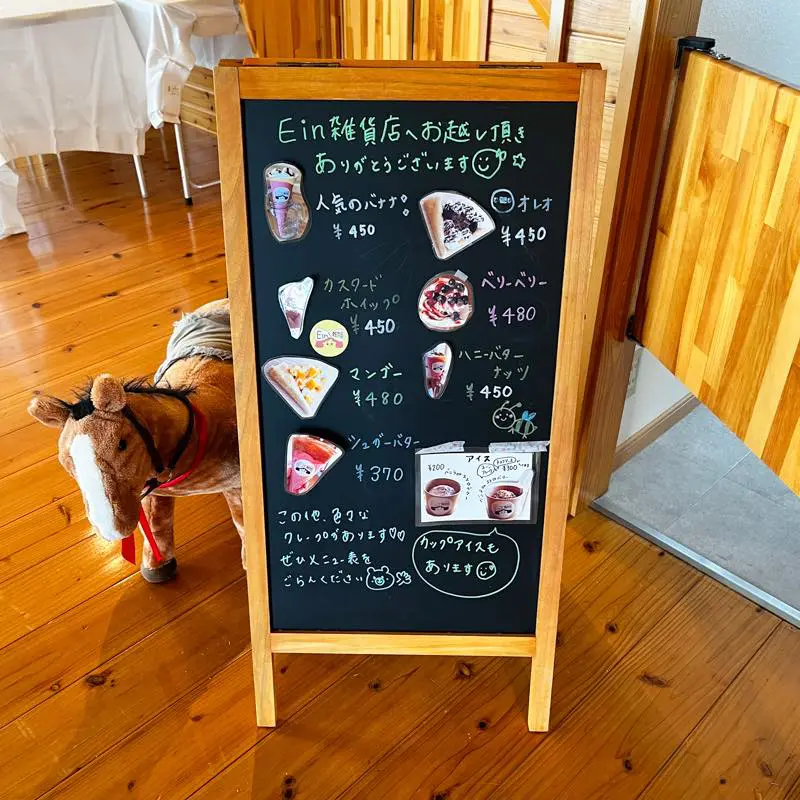 Ein雑貨店へお越し頂き
ありがとうございます
人気のバナナ
¥450
オレオ
¥450
カスタード
ホイップ
¥450
Ein
ベリーベリー
¥480
マンゴー
¥480
ハニーバター
ナッツ
¥450
シュガーバター
¥370
アイス
¥200
¥300
この他、色々な
クレープがあります♡♡
ぜひメニュー表を
ごらんください
カップアイスも
あります